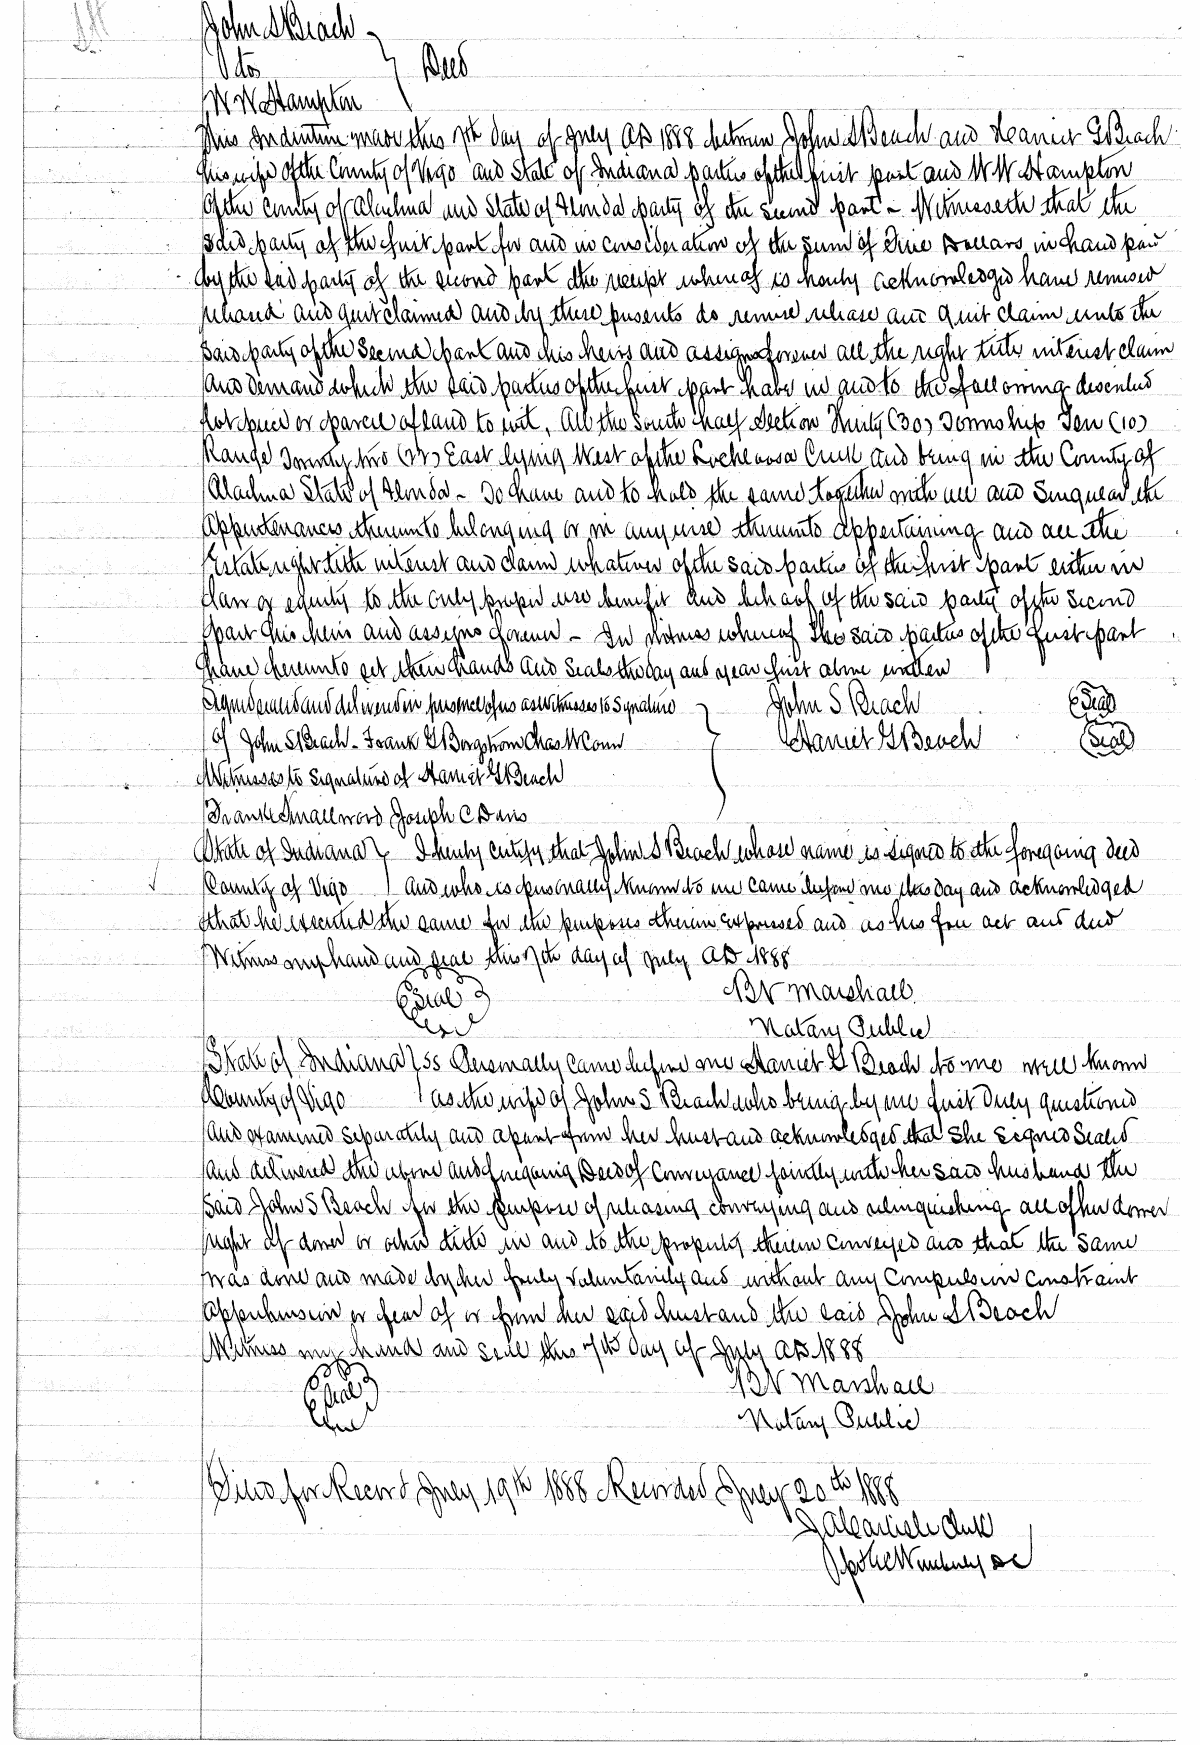 John S Beach
to
Deed
W W Hampton
This Indenture made this 7th day of July AD 1888 between John S Beach and Harriet G Beach
his wife of the County of Vigo and State of Indiana parties of the first part and W W Hampton
Of the County of Alachua and State of Florida party of the second part - Witnesseth that the
said party of the first part for and in consideration of the sum of Five Dollars in hand paid
by the said party of the second part the receipt whereof is hereby acknowledged have remised
released and quit claimed and by these presents do remise release and quit claim unto the
said party of the second part and his heirs and assigns forever all the right title interest claim
and demand which the said parties of the first part have in and to the following described
lot piece or parcel of land to wit, All the South half Section Thirty (30) Township Ten (10)
Range Twenty two (22) East lying West of the Lochloosa Creek and being in the County of
Alachua State of Florida - To have and to hold the same together with all and Singular the
Appurtenances thereunto belonging or in anywise thereunto appertaining and all the
Estate right title interest and claim whatever of the said parties of the first part either in
law or equity to the only proper use benefit and behoof of the said party of the second
part his heirs and assigns forever - In witness whereof the said parties of the first part
have hereunto set their hands and seals the day and year first above written
Signed sealed and delivered in presence of us as Witnesses to Signature John S Beach (Seal)
of John S Beach - Frank G Borgstrom Chas W Conn Harriet G Beach (Seal)
Witnesses to Signature of Harriet G Beach
Frank Smallwood Joseph C Davis
State of Indiana I hereby certify that John S Beach whose name is signed to the foregoing deed
County of Vigo and who is personally known to me came before me this day and acknowledged
that he executed the same for the purposes therein expressed and as his free act and deed
Witness my hand and seal this 7th day of July AD 1888
Seal B V Marshall
Notary Public
State of Indiana ss Personally came before me Harriet G Beach to me well known
County of Vigo as the wife of John S Beach who being by me first duly questioned
and examined separately and apart from her husband acknowledged that she signed sealed
and delivered the above and foregoing Deed of Conveyance jointly with her said husband the
said John S Beach for the purpose of releasing conveying and relinquishing all of her dower
right of dower or other title in and to the property therein conveyed and that the same
was done and made by her freely voluntarily and without any Compulsion Constraint
Apprehension or fear of or from her said husband the said John S Beach
Witness my hand and seal this 7th day of July AD 1888
Seal B V Marshall
Notary Public
Filed for Record July 19th 1888 Recorded July 20th 1888
J A Carlisle Clerk
DC